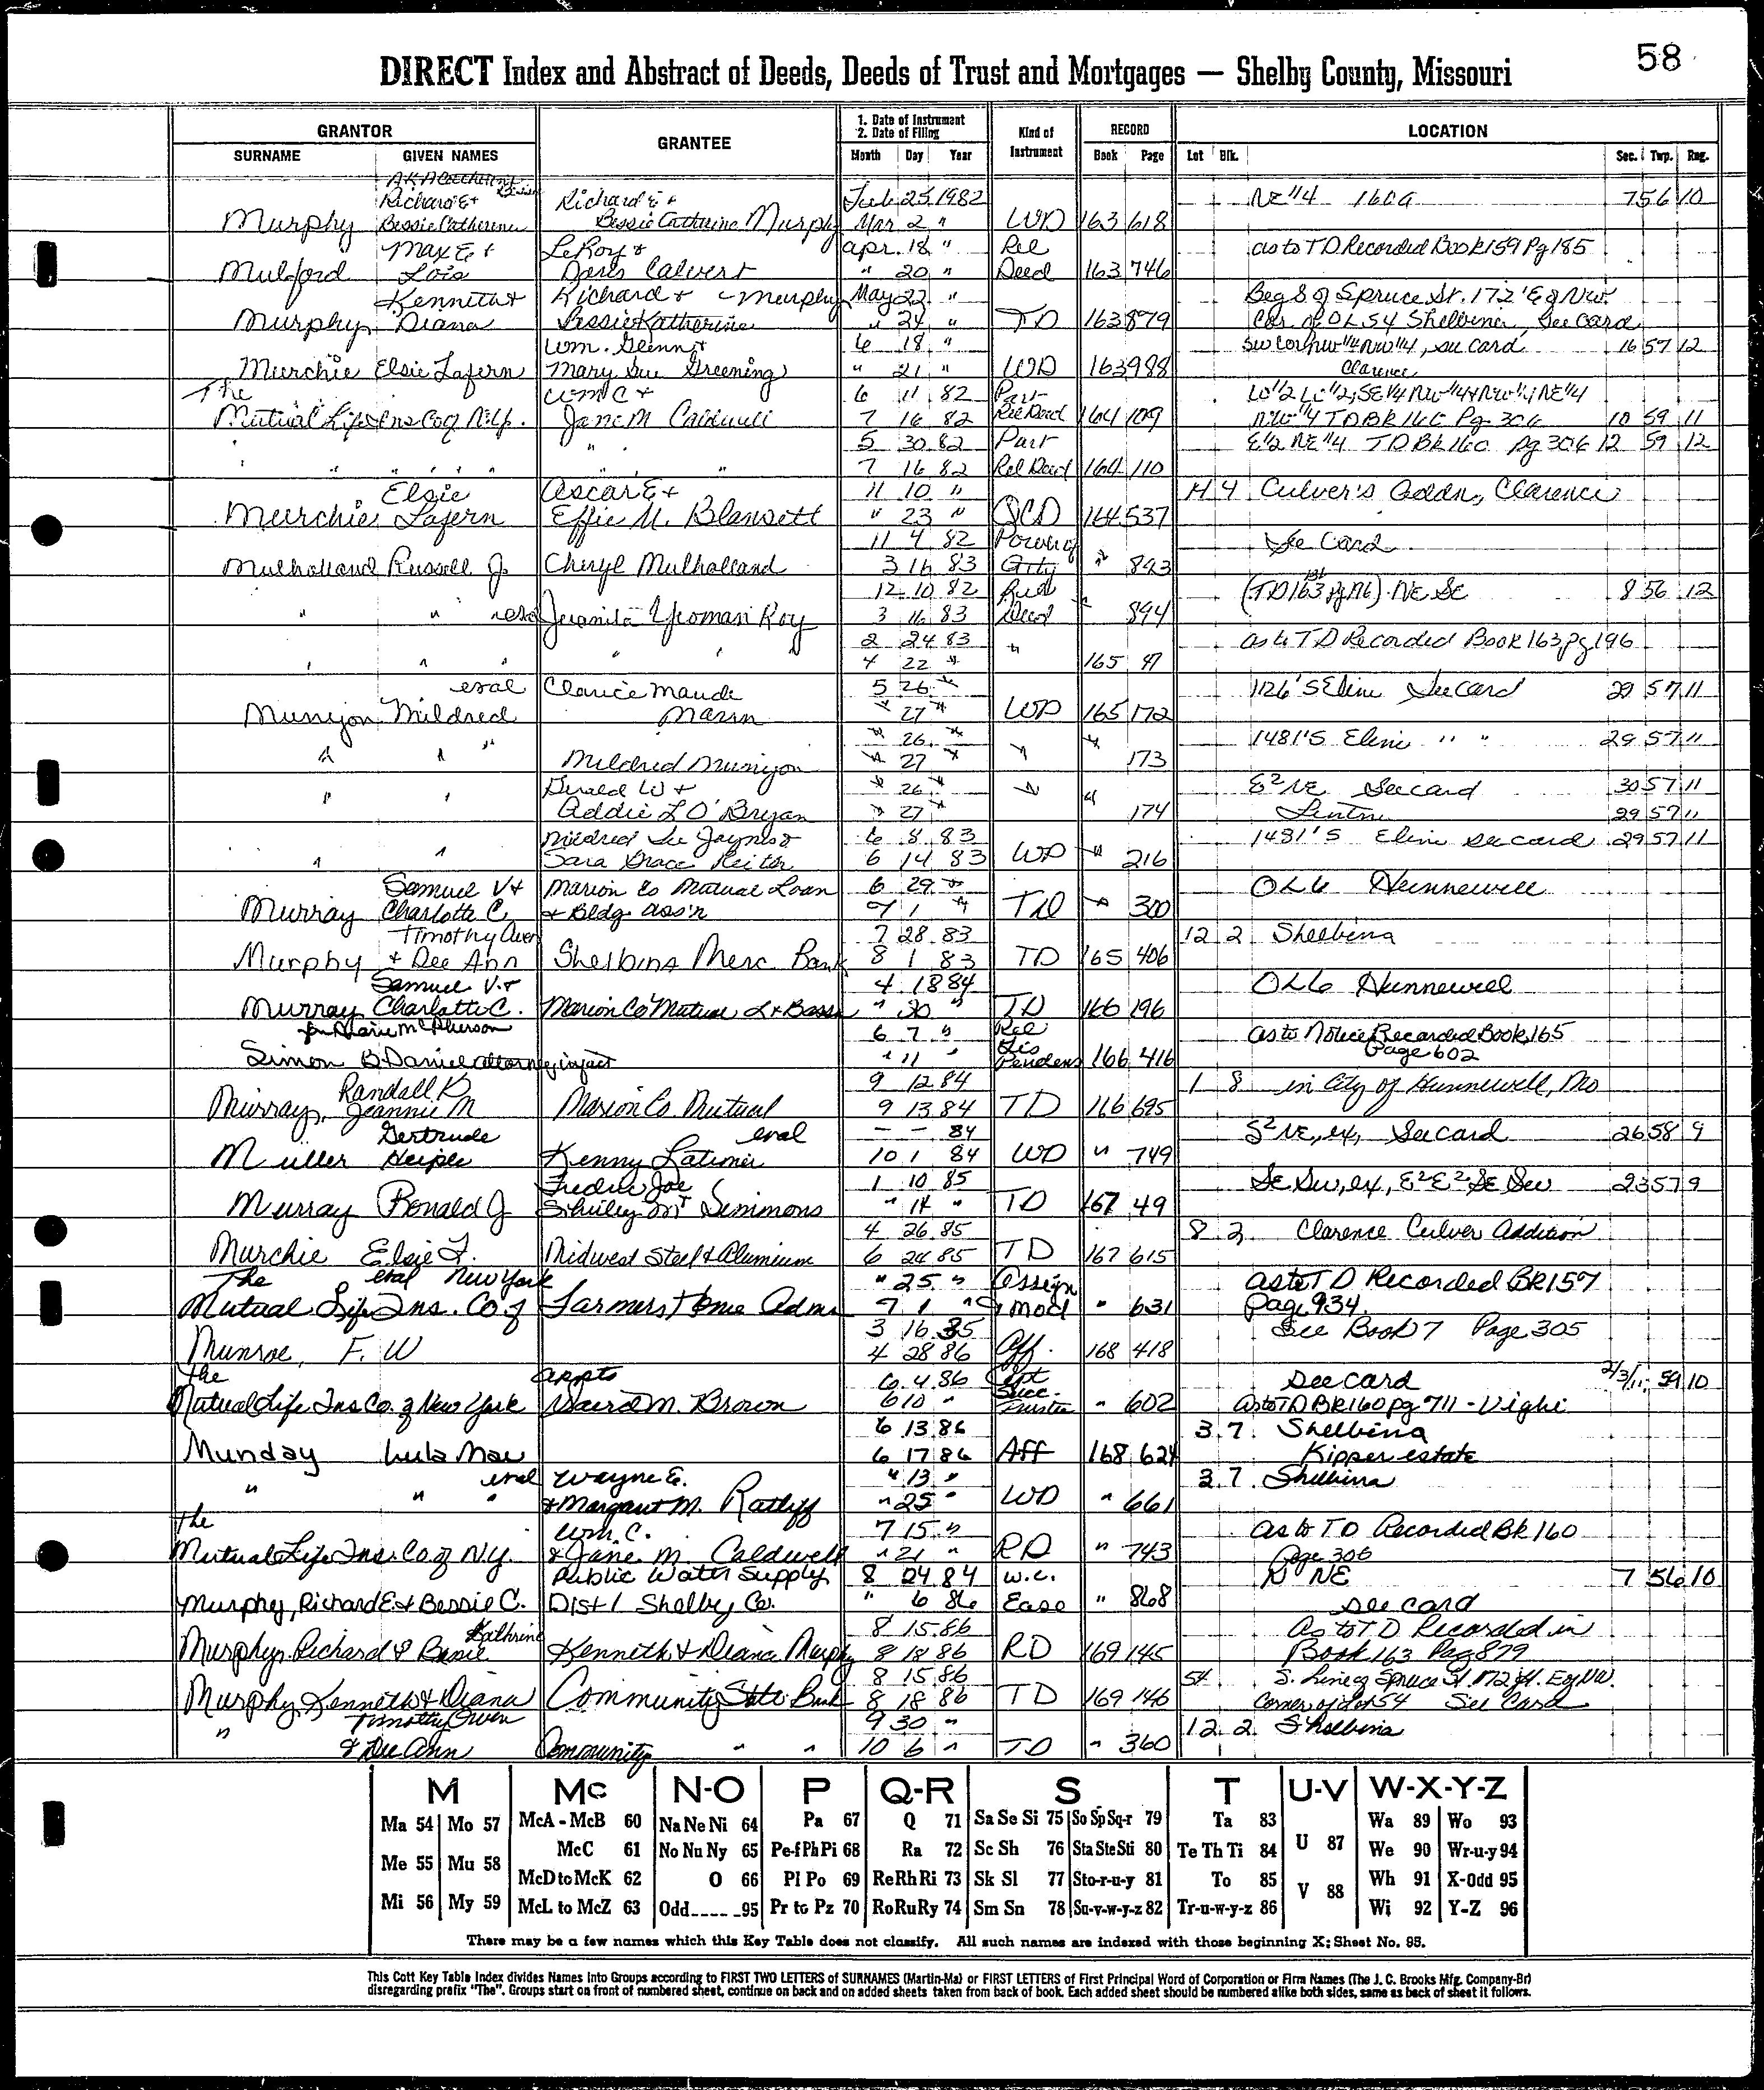 58
DIRECT Index and Abstract of Deeds, Deeds of Trust and Mortgages — Shelby County, Missouri
GRANTOR GRANTEE 1. Date of Instrument 2. Date of Filing Kind of Instrument RECORD LOCATION
SURNAME GIVEN NAMES Month Day Year Book Page Lot Blk. Sec. Twp. Rng.
AKA Catherine
Richard E + Richard E + Feb 25 1982 NE 1/4 160A 7 56 10
Murphy Bessie Catherine Bessie Catherine Murphy Mar 2 " WD 163 618
Max E + LeRoy + Apr. 18 " Rel as to TD Recorded Book 159 Pg 185
Mulford Lois Doris Calvert " 20 " Deed 163 746
Kenneth + Richard + Murphy May 22 " Beg S of Spruce St. 172' E of NW
Murphy Diana Bessie Katherine " 24 " TD 163 879 Cor. of OL 54 Shelbina, See Card
Wm. Glenn + 6 18 " SW cor NW 1/4 NW 1/4, see card 16 57 12
Murchie Elsie Lafern Mary Sue Greening " 21 " WD 163 988 Clarence
The Wm C + 6 11 82 Part
Mutual Life Ins Co of N.Y. Jane M Caldwell 7 16 82 Rel Deed 164 109 NW 1/4 TD BK 160 Pg 306 10 59 11
" 5 30 82 Part E 1/2 NE 1/4 TD Bk 160 pg 306 12 59 12
" " " " " " " 7 16 82 Rel Deed 164 110
Elsie Oscar E + 11 10 " H 4 Culver's Addn, Clarence
Murchie Lafern Effie M. Blansett " 23 " QCD 164 537
11 4 82 Power of See Card
Mulholland Russell J. Cheryl Mulholland 3 16 83 Atty " 893
12 10 82 Rel NE SE 8 56 12
" " Juanita Yeoman Roy 3 16 83 Deed " 894
2 24 83 as to TD Recorded Book 163 pg 196
" " " " " 4 22 " " 165 47
eval Clarice Maude 5 26 " 1126' S E line See Card 29 57 11
Munyon Mildred Mann " 27 " WD 165 172
" 26 " 1481' S E line " " 29 57 11
" " " Mildred Munyon " 27 " " " 173
Gerald W + " 26 " E2 NE See card 30 57 11
" " Addie L O'Bryan " 27 " " " 174 29 57 11
Mildred Lee Jaynes + 6 8 83 1481' S E line see card 29 57 11
" " Sara Grace Reiter 6 14 83 WD " 216
Samuel V + Marion Co Mutual Loan 6 29 " OL 6 Hunnewell
Murray Charlotte C. + Bldg. Ass'n 7 1 " TD " 300
Timothy Owen 7 28 83 12 2 Shelbina
Murphy + Dee Ann Shelbina Merc Bank 8 1 83 TD 165 406
Samuel V. + 4 18 84 OL 6 Hunnewell
Murray Charlotte C. Marion Co Mutual L + B Assn " 30 " TD 166 196
for Marie McPherson 6 7 " Rel as to Notice Recorded Book 165
Simon B Daniel attorney in fact " 11 " Lis Pendens 166 416 Page 602
Randall K 9 12 84 1 8 in City of Hunnewell, Mo
Murray, Jeannie M Marion Co. Mutual 9 13 84 TD 166 695
Gertrude eval — — 84 S2 NE, ex, See card 26 58 9
Muller Heiple Kenny Latimer 10 1 84 WD " 749
Fredric Joe 1 10 85 SE SW, ex, E2 E2 SE SW 23 57 9
Murray Ronald J Shirley M Simmons " 14 " TD 167 49
4 26 85 8 2 Clarence Culver Addition
Murchie Elsie L. Midwest Steel & Aluminum 6 24 85 TD 167 615
The eval New York " 25 " Assign as to TD Recorded BK 157
Mutual Life Ins. Co. of Farmers Home Adm 7 1 " & mod " 631 Page 934.
3 16 85 See Book 7 Page 305
Munroe, F. W 4 28 86 Aff. 168 418
The appts 6 4 86 Apt see card 2/3/11 59 10
Mutual Life Ins Co. of New York David M. Brown 6 10 " Succ. Trustee " 602 As to TD BK 160 pg 711
6 13 86 3 7 Shelbina
Munday Lula Mae 6 17 86 Aff 168 624 Kipper estate
eval Wayne E. " 13 " 3 7 Shelbina
" " " & Margaret M. Ratliff " 25 " WD " 661
The Wm. C. 7 15 " As to TD Recorded Bk 160
Mutual Life Ins. Co. of N.Y. & Jane M. Caldwell " 21 " RD " 743 Page 306
Public Water Supply 8 24 84 W.L. N NE 7 56 10
Murphy, Richard E. & Bessie C. Dist 1 Shelby Co. " 6 86 Ease " 868 see card
Kathrine 8 15 86 As to TD Recorded in
Murphy, Richard & Bessie Kenneth & Diana Murphy 8 18 86 RD 169 145 Book 163 Page 879
8 15 86 54 S. Line of Spruce St 172 ft. E of NW.
Murphy, Kenneth & Diana Community State Bank 8 18 86 TD 169 146 Corner of Lot 54 See Card
Timothy Owen 9 30 " 12 2 Shelbina
" & Dee Ann Community " " 10 6 " TD " 360
M Mc N-O P Q-R S T U-V W-X-Y-Z
Ma 54 Mo 57 McA - McB 60 Na Ne Ni 64 Pa 67 Q 71 Sa Se Si 75 So Sp Sq-r 79 Ta 83 Wa 89 Wo 93
Me 55 Mu 58 McC 61 No Nu Ny 65 Pe-f Ph Pi 68 Ra 72 Sc Sh 76 Sta Ste Sti 80 Te Th Ti 84 U 87 We 90 Wr-u-y 94
McD to McK 62 O 66 Pl Po 69 Re Rh Ri 73 Sk Sl 77 Sto-r-u-y 81 To 85 V 88 Wh 91 X-Odd 95
Mi 56 My 59 McL to McZ 63 Odd 95 Pr to Pz 70 Ro Ru Ry 74 Sm Sn 78 Su-v-w-y-z 82 Tr-u-w-y-z 86 Wi 92 Y-Z 96
There may be a few names which this Key Table does not classify. All such names are indexed with those beginning X; Sheet No. 95.
This Cott Key Table Index divides Names into Groups according to FIRST TWO LETTERS of SURNAMES (Martin-Ma) or FIRST LETTERS of First Principal Word of Corporation or Firm Names (The J. C. Brooks Mfg. Company-Br)
disregarding prefix "The". Groups start on front of numbered sheet, continue on back and on added sheets taken from back of book. Each added sheet should be numbered alike both sides, same as back of sheet it follows.